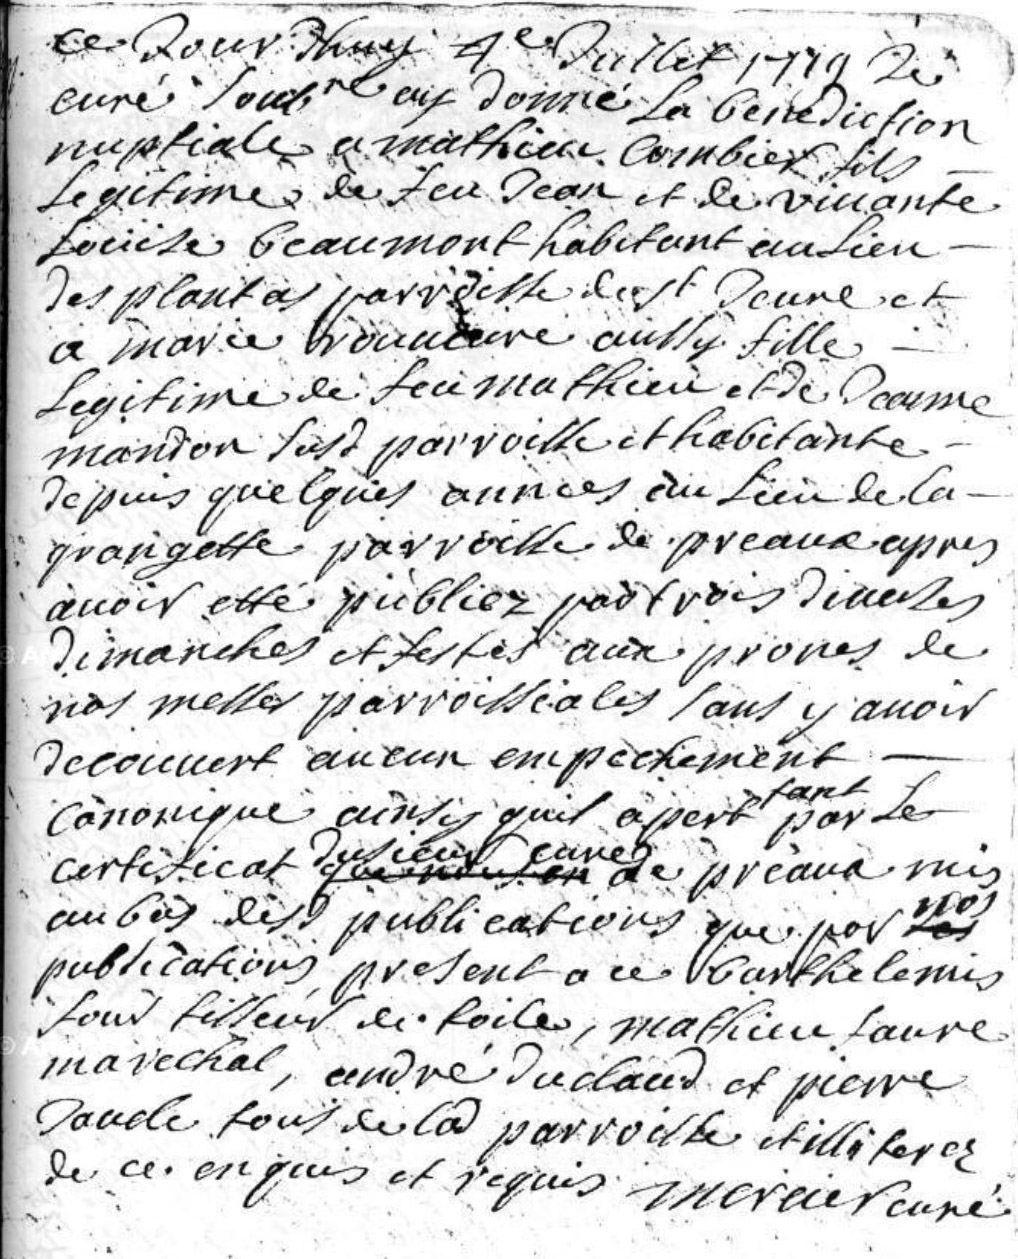 ce Jour dhuy 4e Juillet 1719 Je
curé soubne ay donné La benediction
nuptiale a mathieu Combier fils
Legitime de feu Jean et de vivante
Louise beaumont habitant au Lieu
des plantas parroisse de st Jeure et
a marie aussy fille
Legitime de feu mathieu et de Jeanne
mandon susd parroisse et habitante
depuis quelques annees au Lieu de la
grangette parroisse de preaux apres
avoir etté publiez par trois diverses
dimanches et festes aux prones de
nos messes parroissiales sans y avoir
decouvert aucun empechement
canonique ainsy quil apert tant par Le
certificat du sieur curé de preaux mis
au bas desd publications que par nos
publications present a ce barthelemis
tisseur de toile, mathieu faure
marechal, andré duclaud et pierre
tous de lad parroisse et illiterez
de ce enquis et requis mercier curé